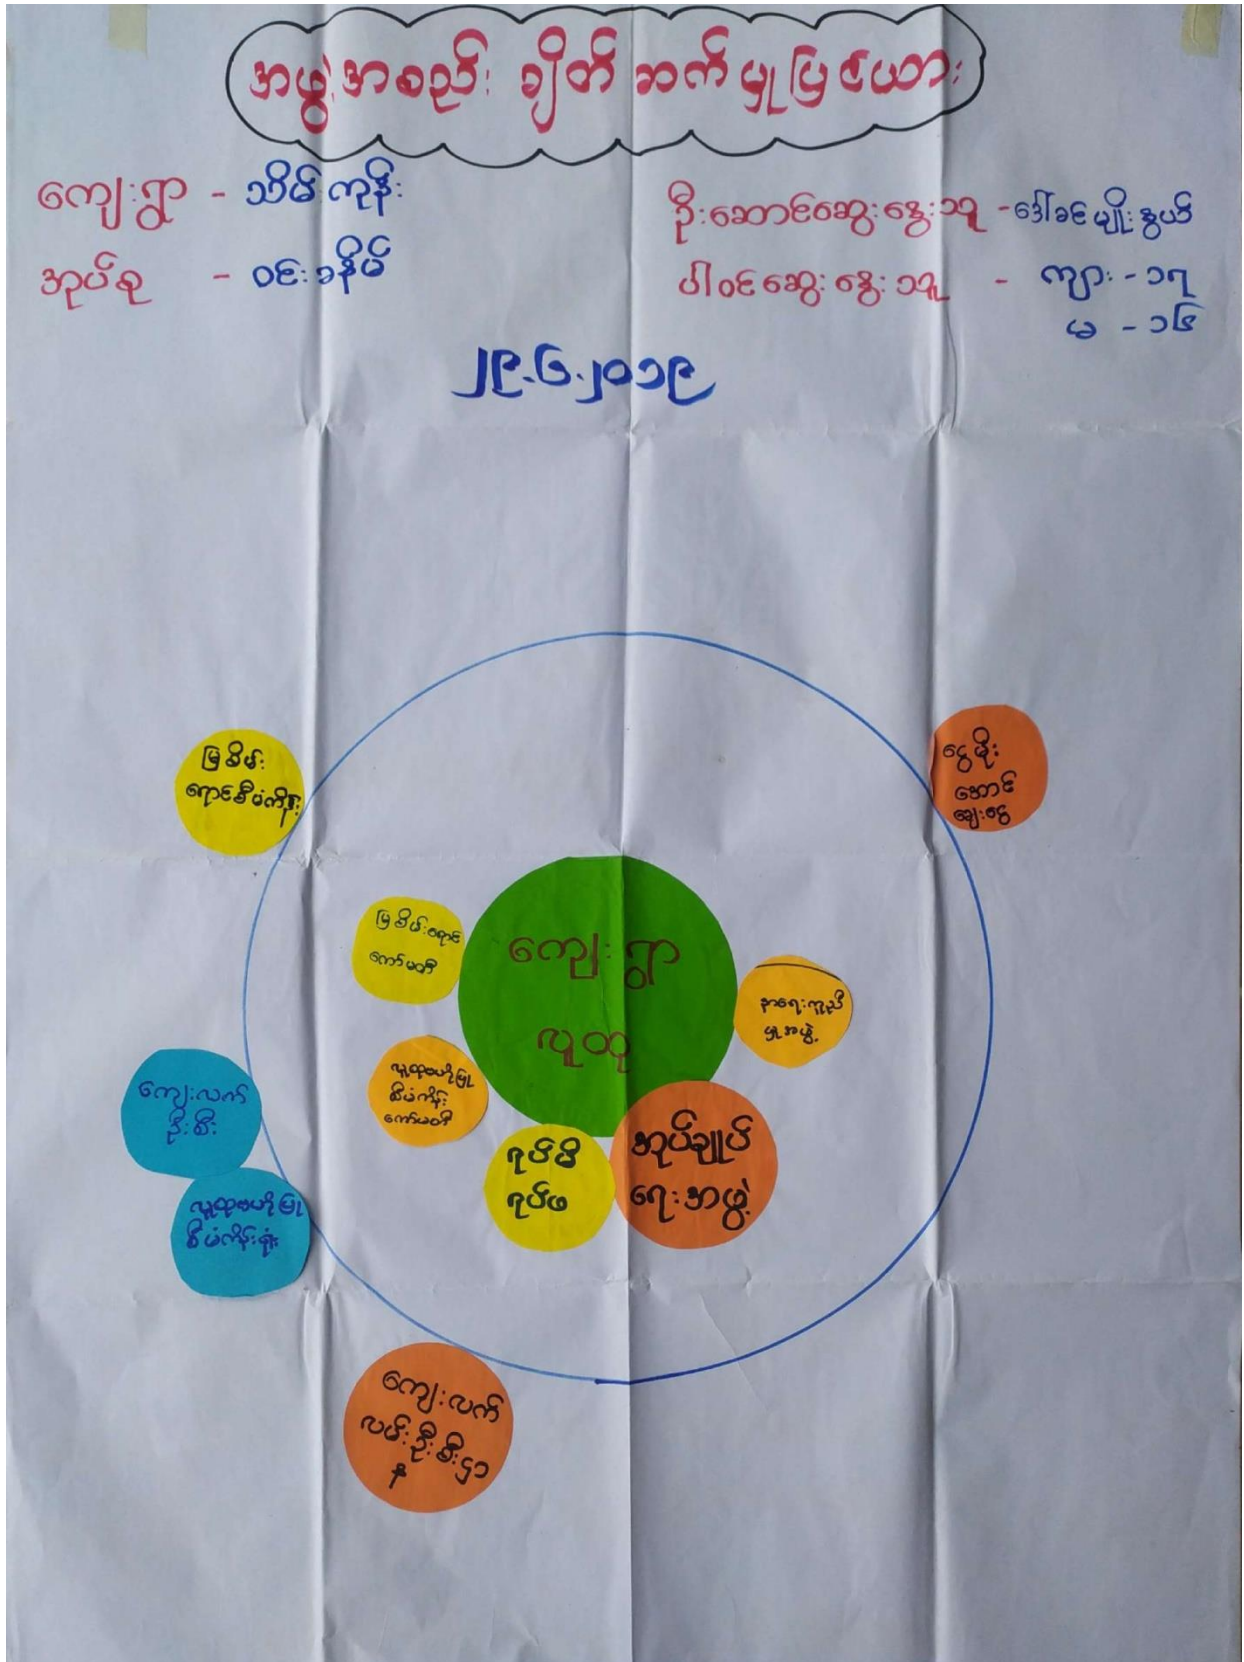 အဖွဲ့အစည်း ချိတ်ဆက်မှုပြဇယား
ကျေးရွာ - သိမ်ကုန်း
အုပ်စု - ဝင်းခနိမ်
ဦးဆောင်ဆွေးနွေးသူ - ဒေါ်ခင်မျိုးနွယ်
ပါဝင်ဆွေးနွေးသူ - ကျား - ၁၇
မ - ၁၆
၂၉.၆.၂၀၁၉
မြစိမ်း
ရောင်စီမံကိန်း
ငွေမိုး
အောင်
ချေးငွေ
မြစိမ်းရောင်
ကော်မတီ
ကျေးရွာ
လူထု
နာရေးကူညီ
မှုအဖွဲ့
လူထုဗဟိုပြု
စီမံကိန်း
ကော်မတီ
ကျေးလက်
ဦးစီး
ရပ်မိ
ရပ်ဖ
အုပ်ချုပ်
ရေးအဖွဲ့
လူထုဗဟိုပြု
စီမံကိန်းရုံး
ကျေးလက်
လမ်းဦးစီးဌာ
န